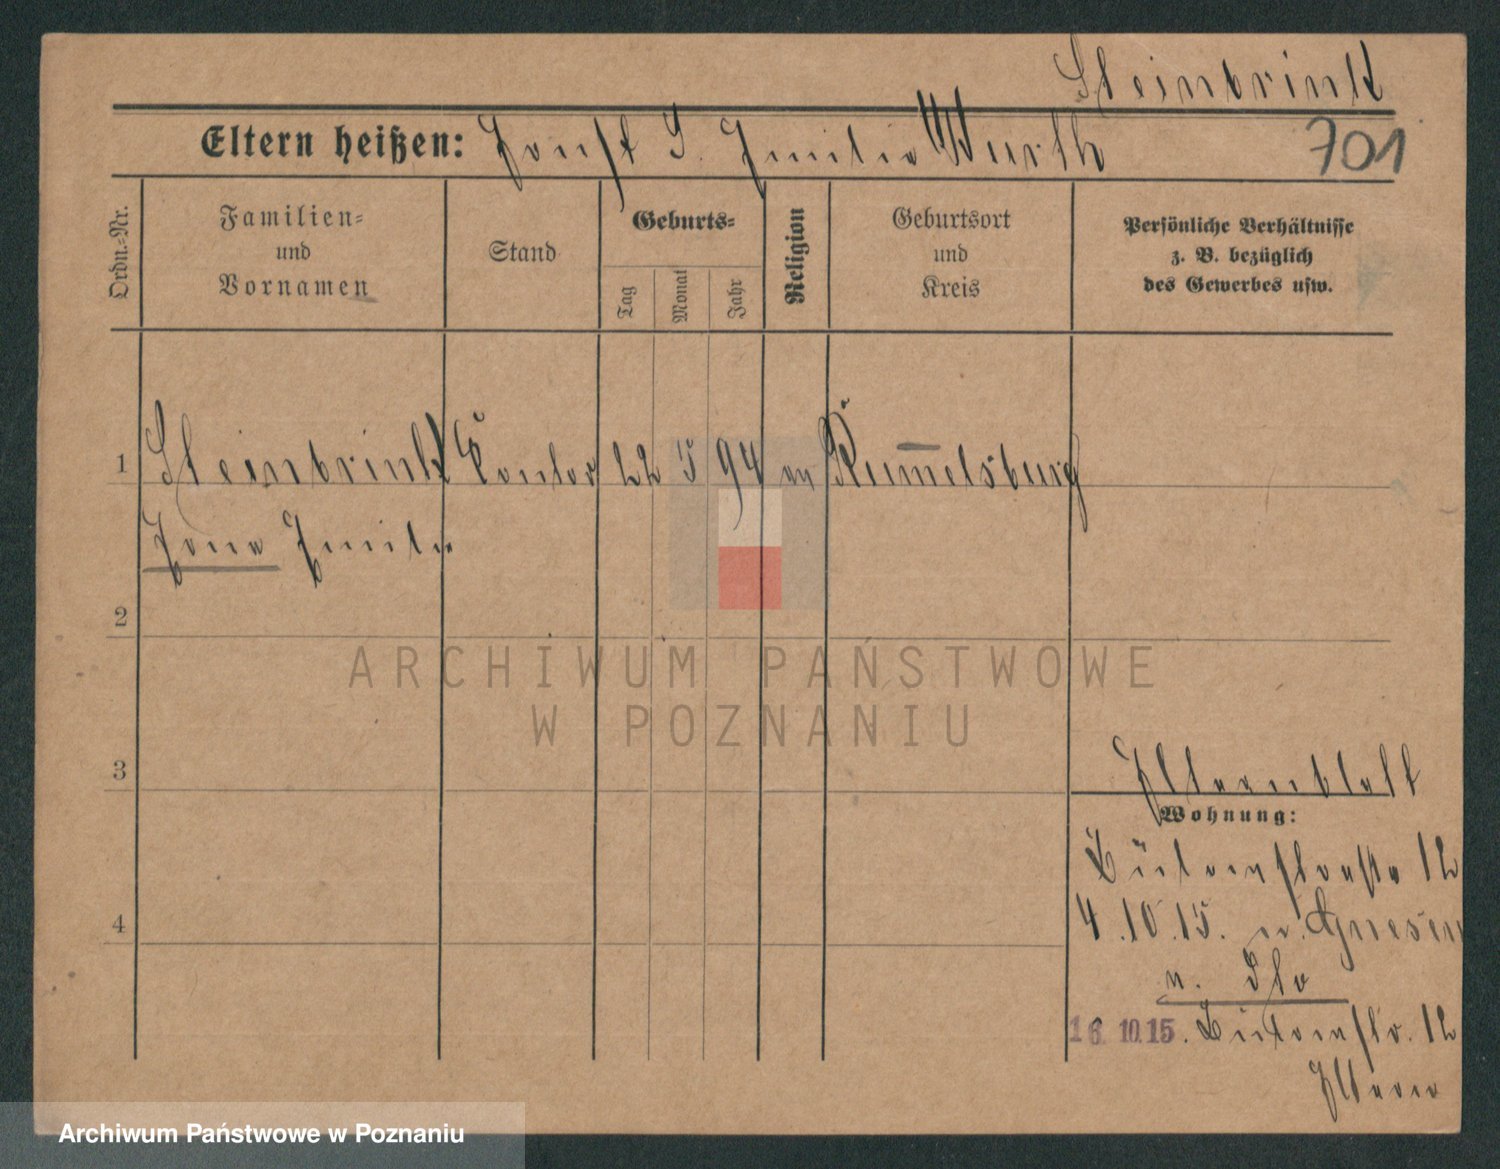 Steinbrink
Eltern heißen: Ernst S. Emilie Wurth
701
Ordn.=Nr.
Familien=
und
Vornamen
Stand
Geburts=
Tag
Monat
Jahr
Religion
Geburtsort
und
Kreis
Persönliche Verhältnisse
z. B. bezüglich
des Gewerbes usw.
1 Steinbrink 22 5 94 Rummelsburg
Emilie
2
ARCHIWUM PAŃSTWOWE
W POZNANIU
3
Elternblatt
Wohnung:
12
4.10.15. n. Gnesen
4
16.10.15. 12
Eltern
Archiwum Państwowe w Poznaniu